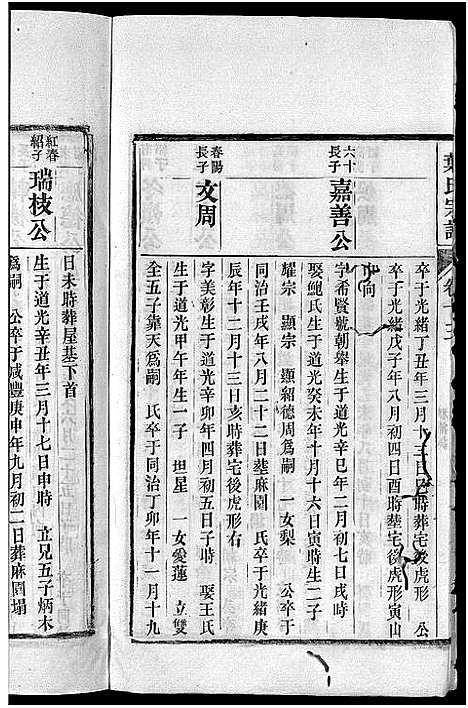 葉氏宗譜
卒于光緒丁丑年三月十三日巳時葬宅後虎形　公
卒于光緒戊子年八月初四日酉時塟宅後虎形寅山
向
六十長子
嘉善公
字希賢號朝舉生于道光辛巳年二月初七日戌時
娶鮑氏生于道光癸未年十月十六日寅時生二子
耀宗　顯宗　顯紹德周爲嗣　一女梨　公卒于
同治壬戌年八月二十二日塟麻園　氏卒于光緒庚
辰年十二月十三日亥時葬宅後虎形右
春陽長子
文周
字美彰生于道光辛卯年四月初五日子時　娶王氏
生于道光甲午年年生一子　坦星　一女愛蓮　立雙
全五子靠天爲嗣　氏卒于同治丁卯年十一月十九
日未時葬屋基下首
紅春紹子
瑞枝公
生于道光辛丑年三月十七日申時　立兄五子炳木
爲嗣　公卒于咸豐庚申年九月初二日葬麻園塌